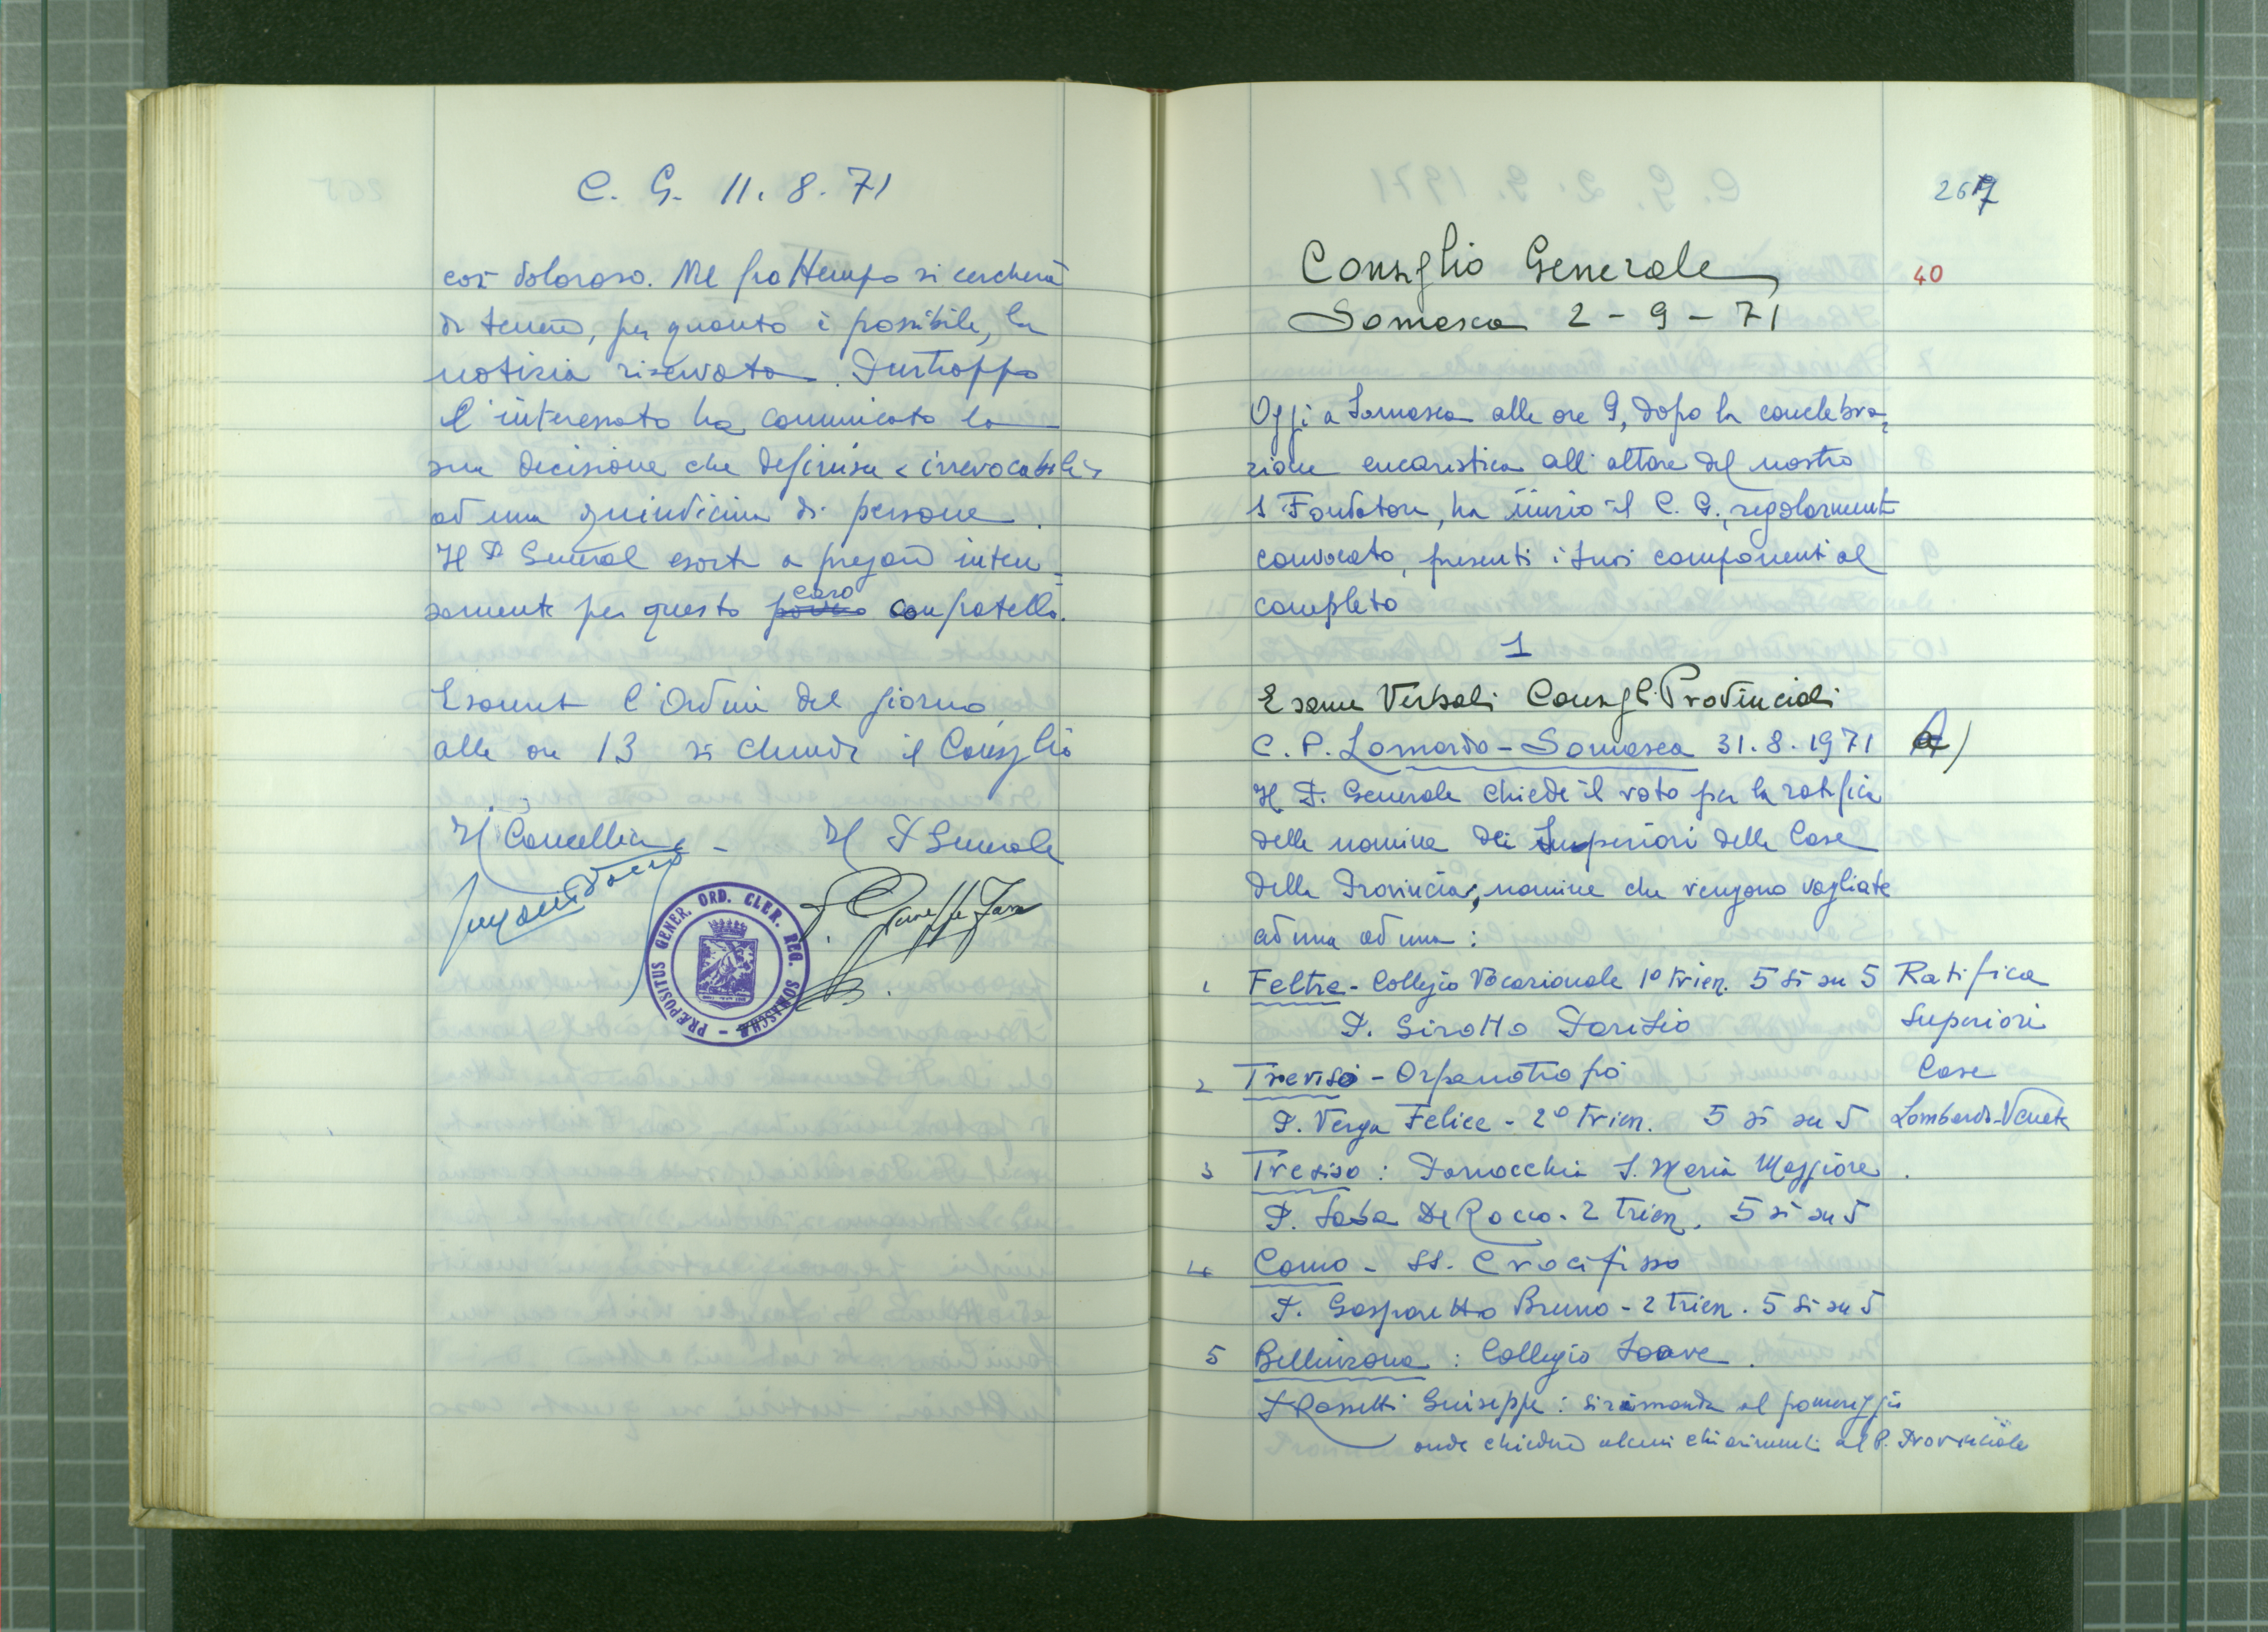 C. G. 11. 8. 71
così doloroso. Nel frattempo si cercherà
di tenere, per quanto è possibile, la
notizia riservata. Purtroppo
l'interessato ha comunicato la
sua decisione che definisce "irrevocabile"
ad una quindicina di persone.
Il P. General esorta a pregare inten=
samente per questo povero caro confratello.
Esaurito l'Ordine del giorno,
alle ore 13 si chiude il Consiglio
Il Cancelliere - Il P Generale
PRÆPOSITUS GENER. ORD. CLER. REG. SOMASCHÆ
267
Consiglio Generale
40
Somasca 2-9-71
Oggi a Somasca alle ore 9, dopo la concelebra=
zione eucaristica all'altare del nostro
S Fondatore, ha inizio il C. G., regolarmente
convocato, presenti i suoi componenti al
completo
1
Esame Verbali Consigl. Provinciali
C. P. Lomardo-Somasca 31.8.1971 A)
Il P. Generale chiede il voto per la ratifica
delle nomine dei Superiori delle Case
della Provincia, nomine che vengono vagliate
ad una ad una:
1 Feltre - Collegio Vocazionale 1º trien. 5 sì su 5 Ratifica
P. Sirotto Parisio Superiori
2 Treviso - Orfanotrofio Case
P. Verga Felice - 2º trien. 5 sì su 5 Lombardo-Veneta
3 Treviso: Parrocchia S. Maria Maggiore.
P. Saba De Rocco. 2 trien. 5 sì su 5
4 Como - SS. Crocifisso
P. Gasparetto Bruno - 2 trien. 5 sì su 5
5 Bellinzona: Collegio Soave.
P Rossetti Giuseppe: si rimanda al pomeriggio
onde chiedere alcuni chiarimenti al P. Provinciale